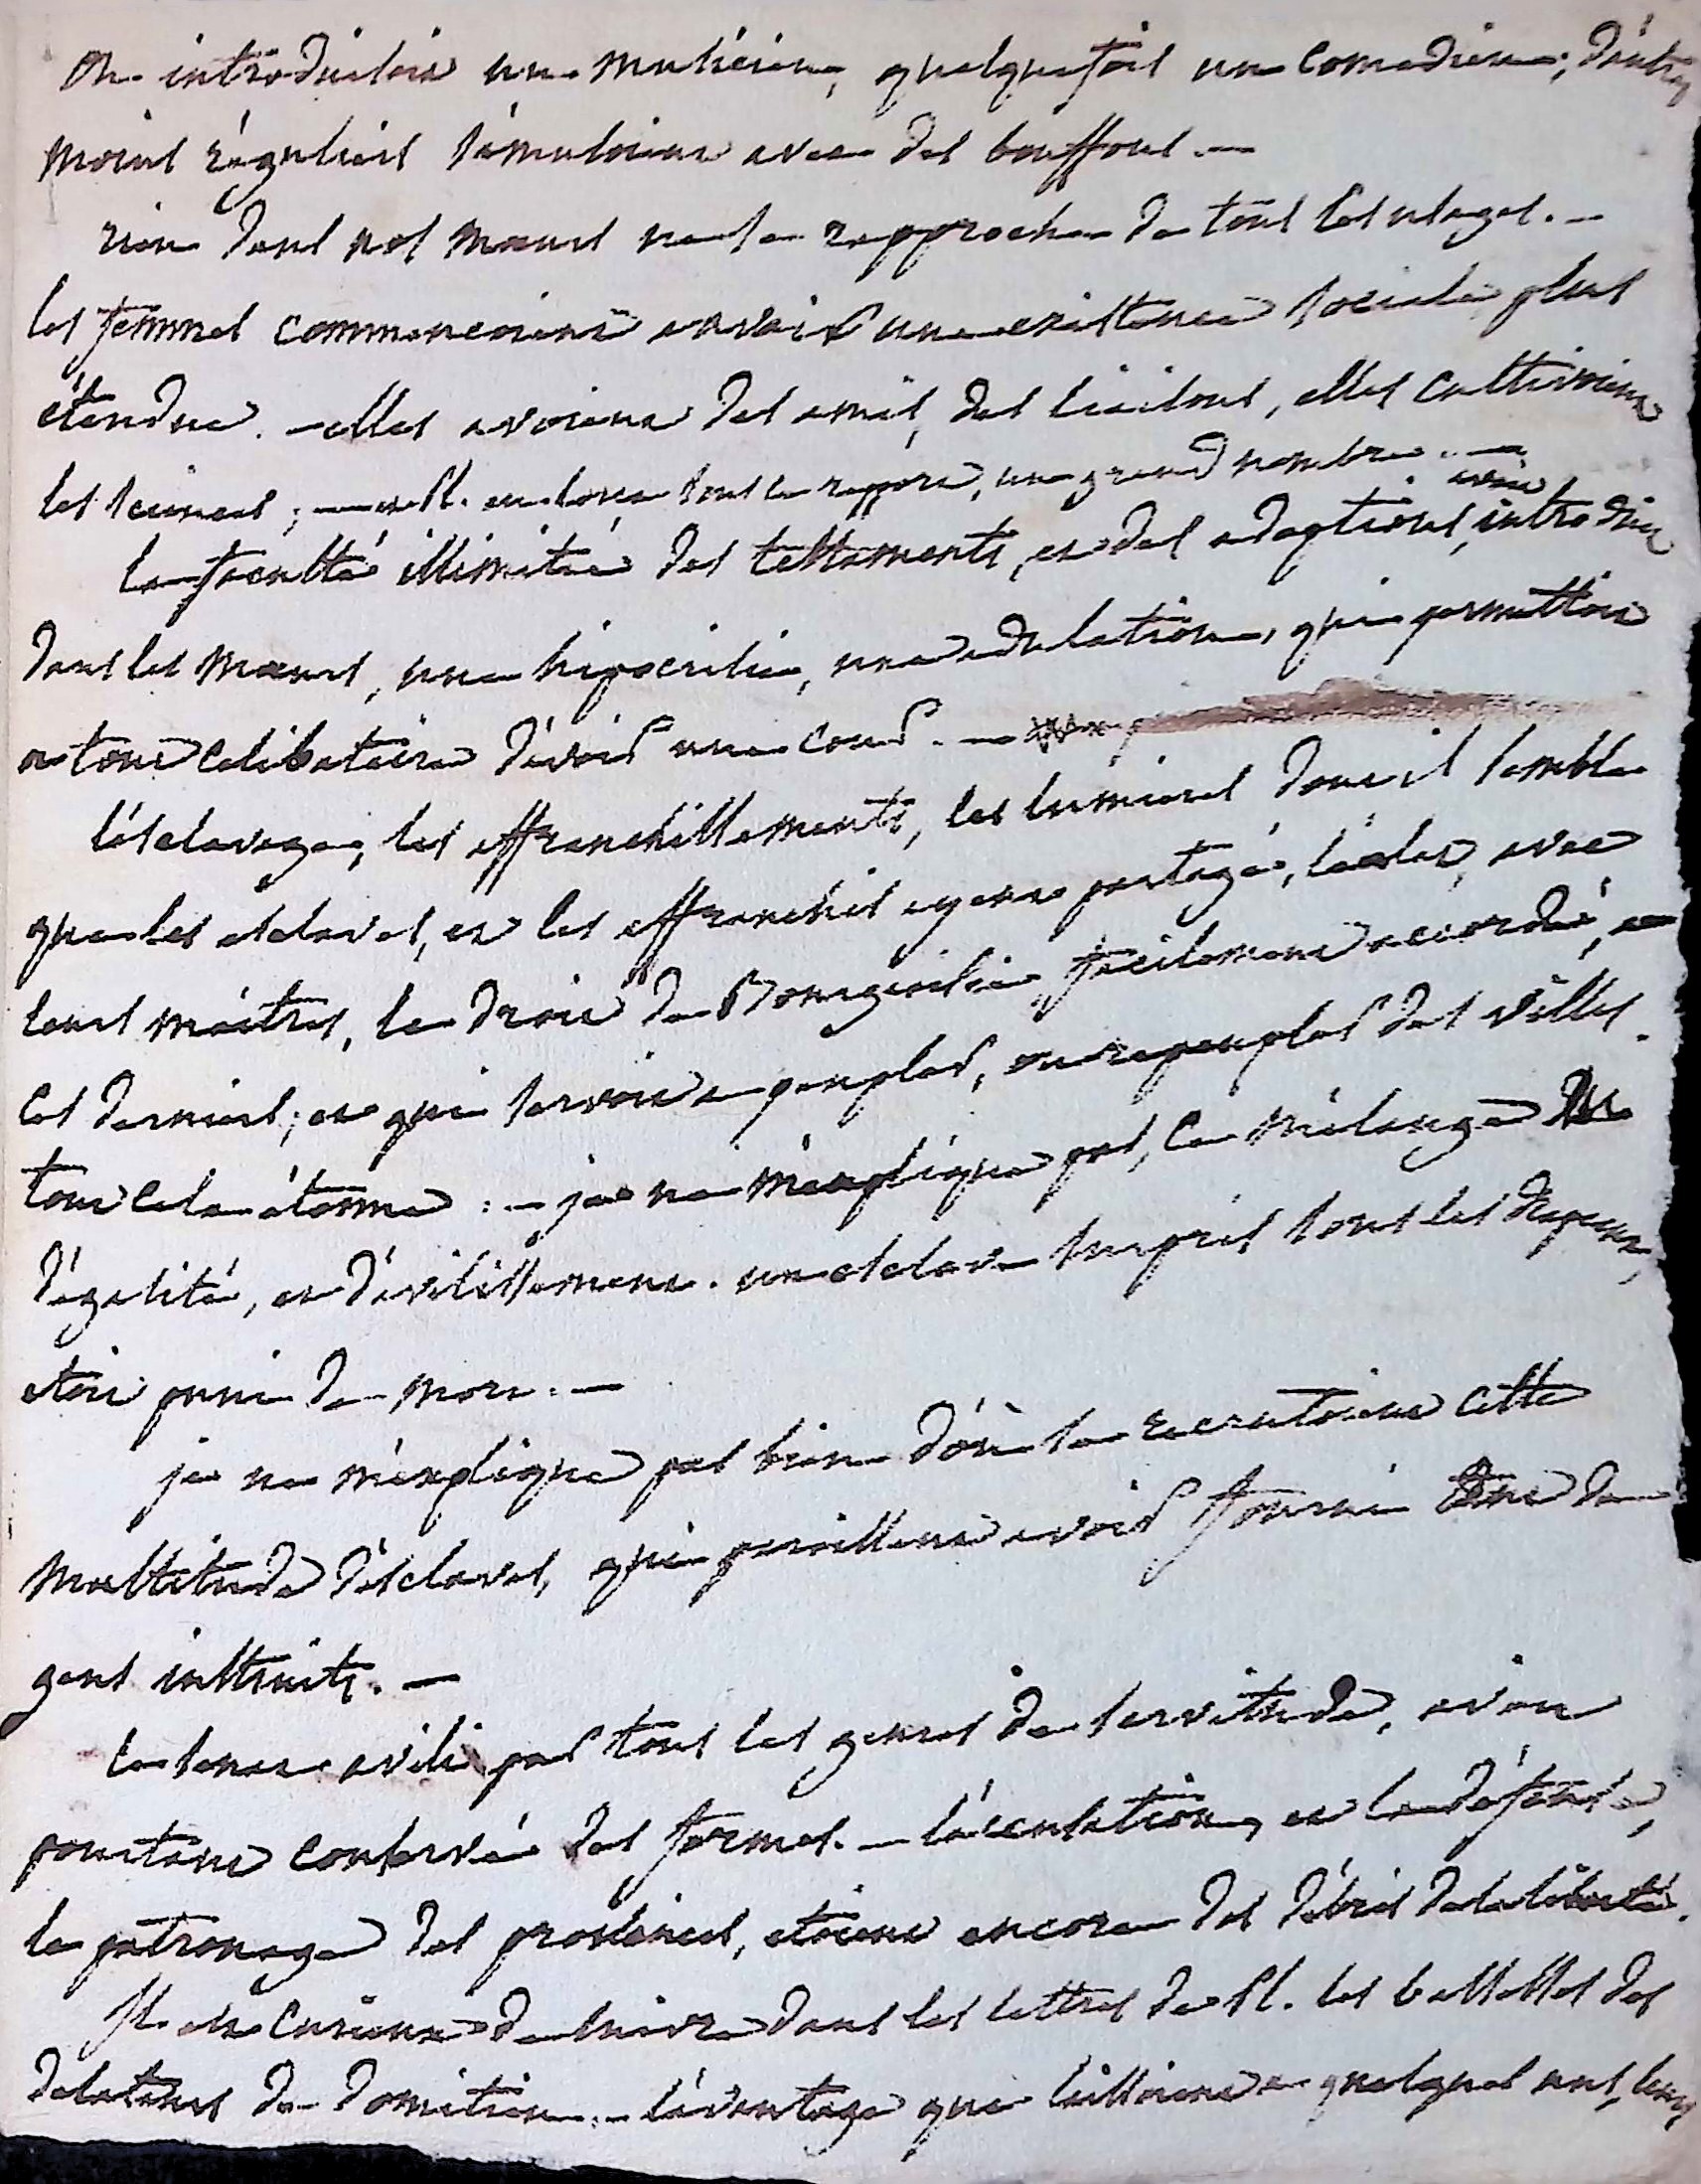 on introduisoit un musicien, quelquefois un comedien; d'autres
moins réguliers s'amusoient avec des bouffons. —
rien dans nos mœurs ne se rapproche de tous ces usages. —
les femmes commencoient a avoir une existence sociale plus
étendue. — elles avoient des amis, des liaisons, elles cultivoient
les sciences; — et Pl. en loue sous ce rapport, un grand nombre. —
la faculté illimitée des testaments, et des adoptions, avoit introduit
dans les mœurs, une hipocrisie, une adulation, qui permettoit
a tout celibataire d'avoir une cour. —
l'esclavage, les affranchissements, les lumieres dont il semble
que les esclaves, et les affranchis ayent partagé, l'éclat, avec
leurs maitres, le droit de Bourgeoisie facilement accordé, a
ces derniers; et qui servoit a peupler, ou repeupler des villes.
tout cela étonne: — je ne m'explique pas, ce mélange
d'égalité, et d'avilissement. un esclave surpris sous les drapeaux,
etoit puni de mort. —
je ne m'explique pas bien d'où se recrutoient cette
multitude d'esclaves, qui paroissent avoir fourni tant de
gens instruits. —
le senat avili par tous les genres de servitude, avoit
pourtant conservé des formes. — l'accusation, et la défense,
le patronage des provinces, etoient encore des débris de la liberté.
Il est curieux de suivre dans les lettres de Pl. les bassesses des
delateurs de Domitien. — l'avantage que laissoient a quelques uns, leurs